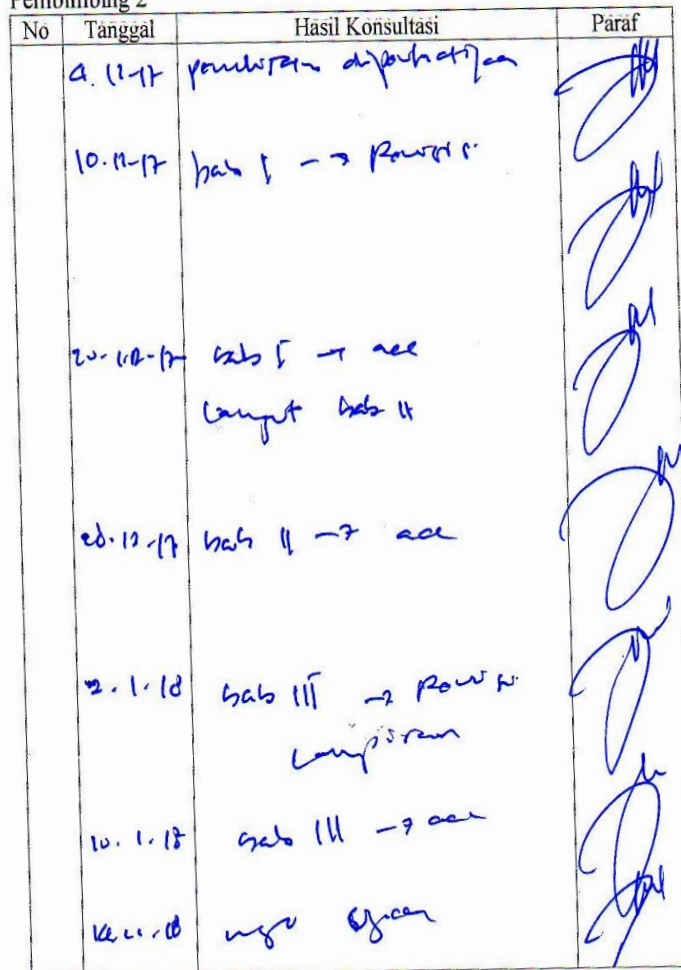 Pembimbing 2
No Tanggal Hasil Konsultasi Paraf
4. 12-17 penulisan diperhatikan
10. 12-17 bab I → Revisi
20-12-17 bab I → acc
Lanjut bab II
28-12-17 bab II → acc
2. 1. 18 bab III → Revisi
Lampiran
10. 1. 18 bab III → acc
ujian